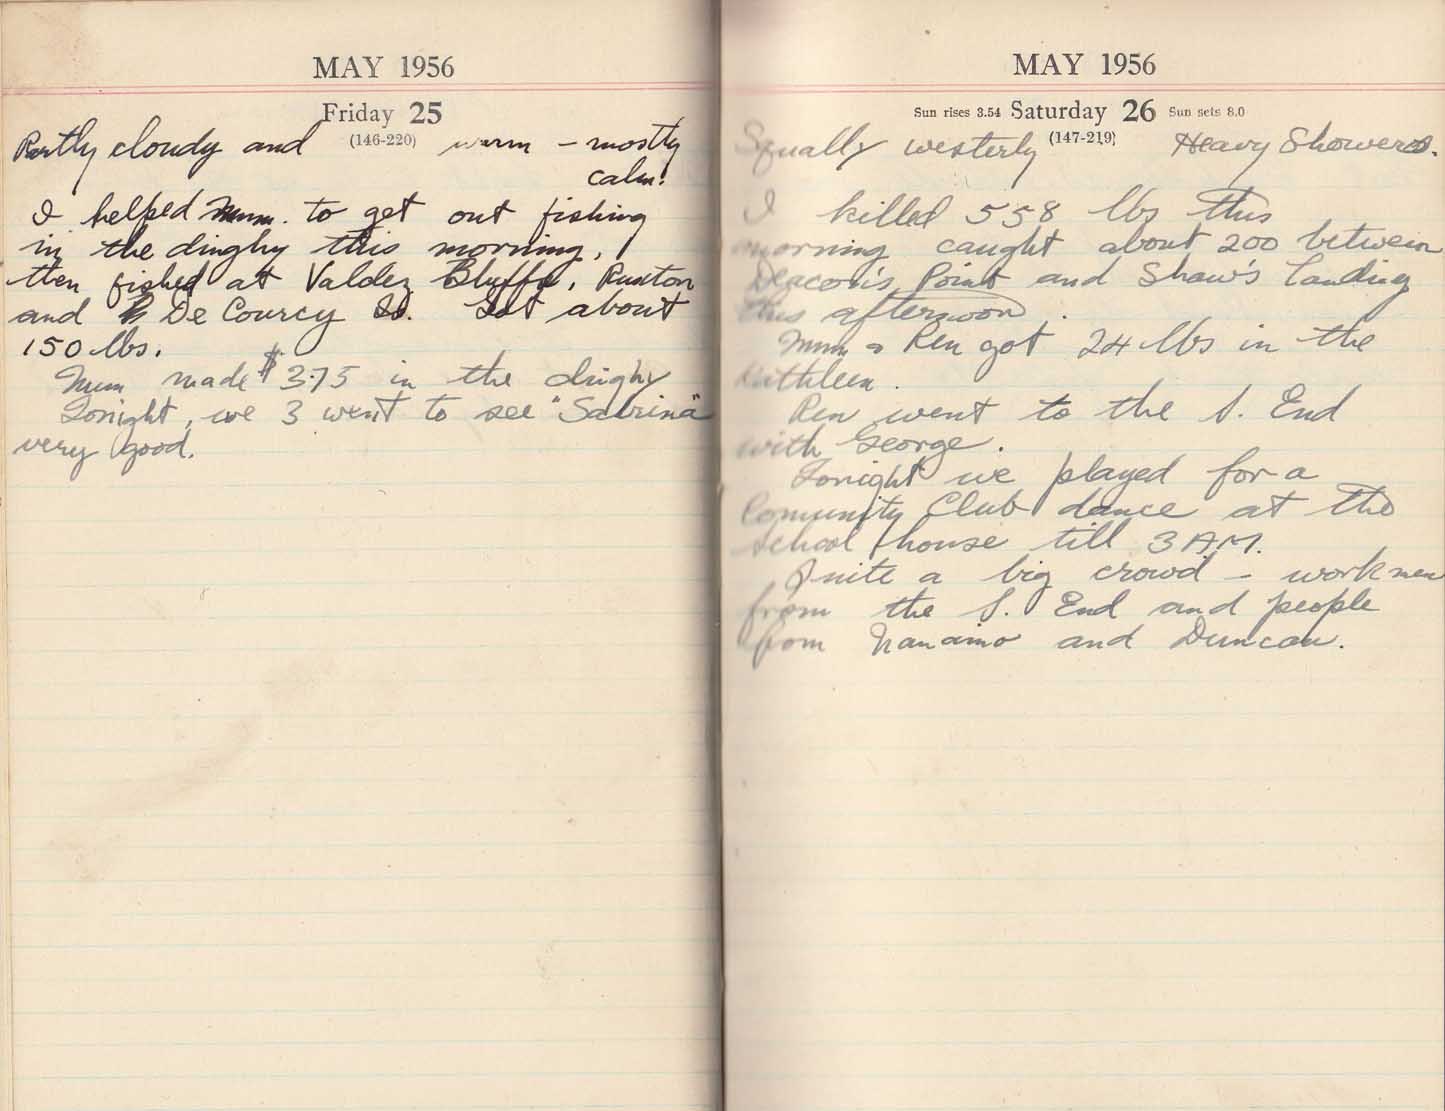 MAY 1956
Friday 25
(146-220)
Partly cloudy and warm - mostly
calm.
I helped Mum. to get out fishing
in the dinghy this morning,
then fished at Valdez Bluffs, Ruxton
and De Courcy Is. Got about
150 lbs.
Mum made $3.75 in the dinghy
Tonight, we 3 went to see "Sabrina"
very good.
MAY 1956
Sun rises 3.54 Saturday 26 Sun sets 8.0
(147-219)
Squally westerly Heavy Showers.
I killed 558 lbs this
morning caught about 200 between
Deacon's Point and Shaw's Landing
this afternoon.
Mum & Ren got 24 lbs in the
Kathleen.
Ren went to the S. End
with George.
Tonight we played for a
Comunity Club dance at the
school house till 3 A.M.
Quite a big crowd - workmen
from the S. End and people
from Nanaimo and Duncan.